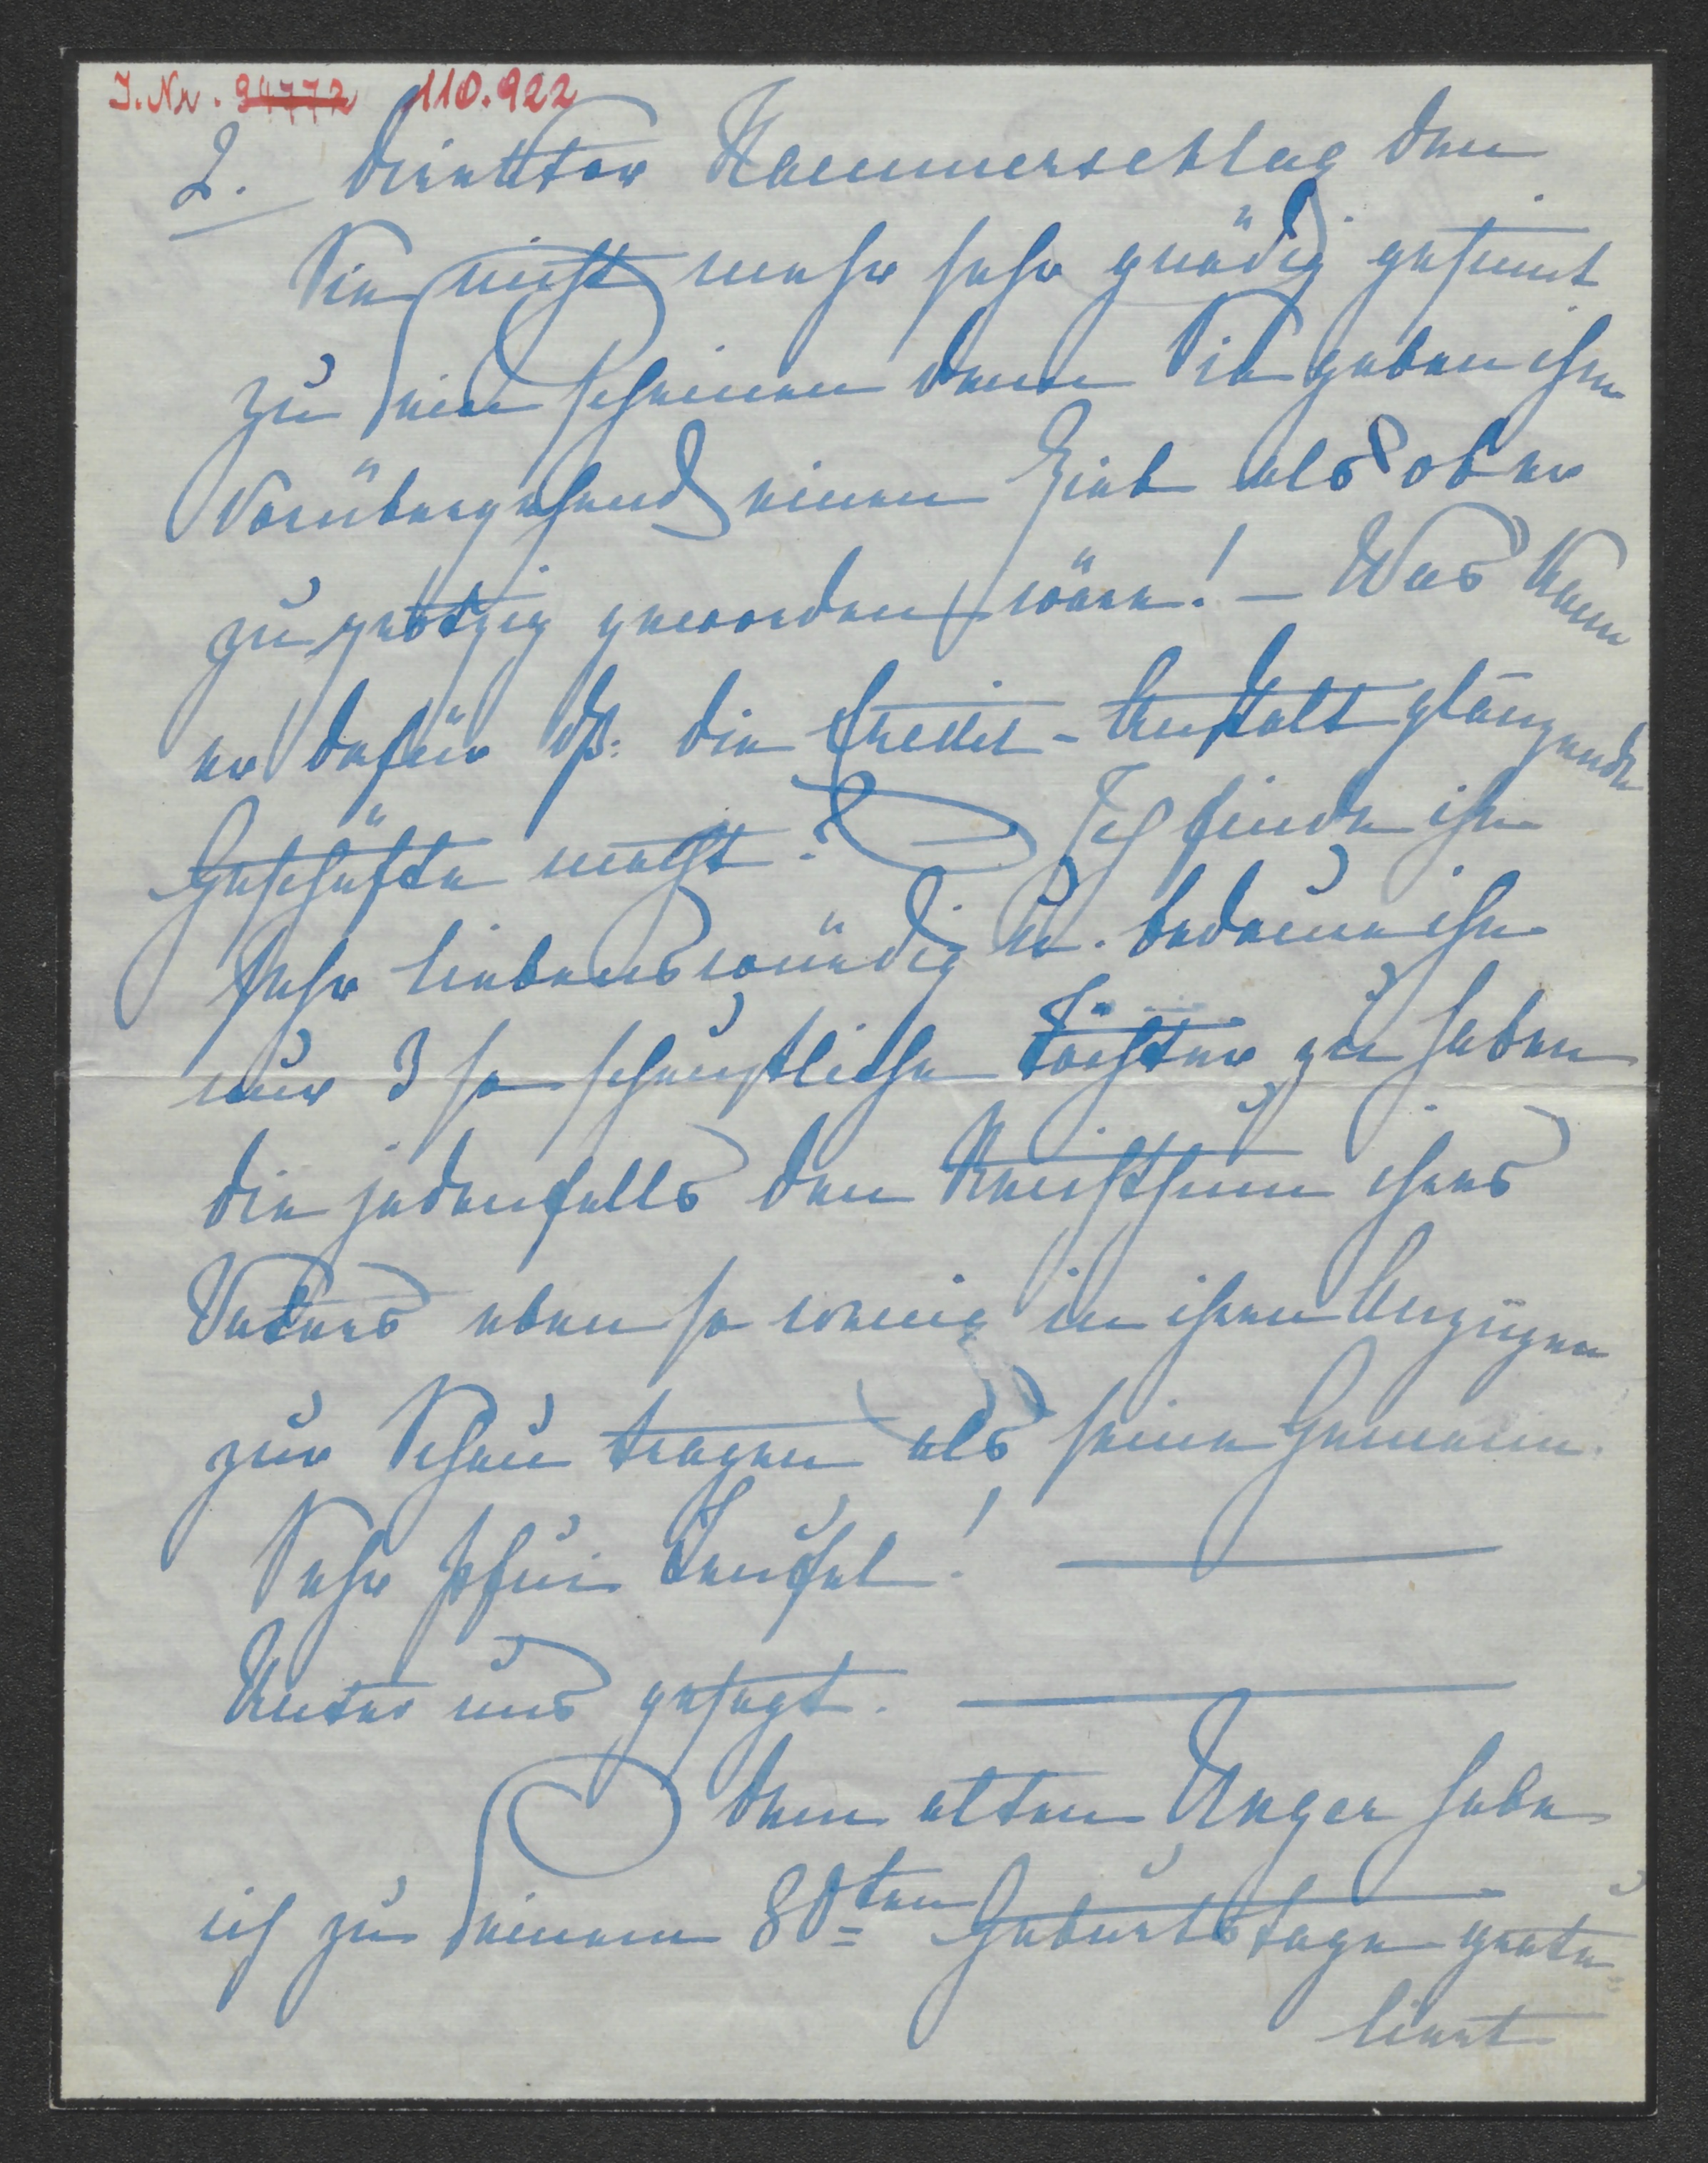 I. Nr. 94772 110.922
2. Direktor Hammerschlag dem
Sie nicht mehr sehr gnädig gesinnt
zu sein scheinen denn Sie geben ihm
vorübergehend einen Hieb als ob er
zu protzig geworden wäre! – Was kann
er dafür dß. die Credit-Anstalt glänzende
Geschäfte macht? Ich finde ihn
sehr liebenswürdig u. bedaure ihn
nur 3 so scheußliche Töchter zu haben
die jedenfalls den Reichthum ihres
Vaters eben so wenig in ihren Anzügen
zur Schau tragen als seine Gemalin.
Sehr pfui Teufel!
Unter uns gesagt.
Dem alten Unger habe
ich zu seinem 80ten Geburtstage gratu=
liert